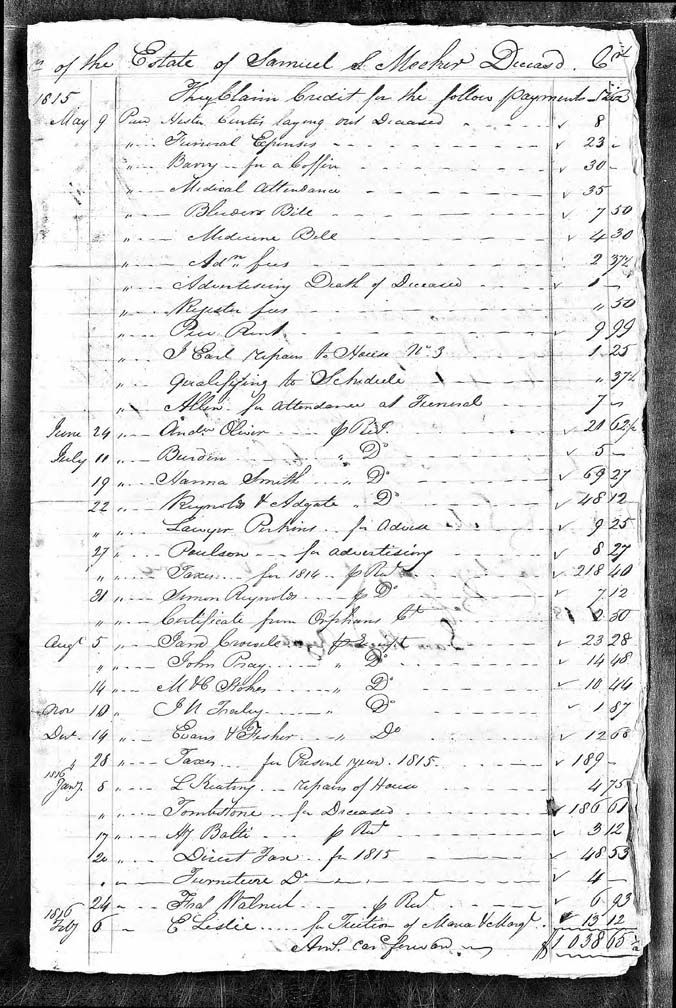 of the Estate of Samuel S. Meeker Deceasd. Cr
1815 They Claim Credit for the follow payments
May 9 Paid Hester Curtis laying out Deceased ✓ 8
" Funeral Epenses ✓ 23 -
" Barry for a Coffin ✓ 30 -
" Medical Attendance ✓ 35 -
" Bleeders Bill ✓ 7 50
" Medicine Bill ✓ 4 30
" Admn fees 2 37½
" Advertising Death of Deceased ✓ 1 -
" Register fees " 50
" Pew Rent ✓ 9 99
" J Earl repairs to House No. 3 1 25
" qualifying to Schedule " 37½
" Allen for attendance at Funeral ✓ 7 -
June 24 " Andw Oliver p Rect. ✓ 20 62½
July 11 " Burden " Do ✓ 5 -
19 " Hanna Smith " Do ✓ 69 27
22 " Reynolds & Adgate " Do ✓ 48 12
" " Lawyer Perkins for Advise ✓ 9 25
27 " Poulson for advertising ✓ 8 27
" " Taxes for 1814 p Rect ✓ 218 40
31 " Simon Reynolds p Do ✓ 7 12
" " Certificate from Orphans Ct 2 50
Augt 5 " ✓ 23 28
" " John Pray " Do ✓ 14 48
14 " M & C Stokes " Do ✓ 10 44
Nov 10 " Do ✓ 1 87
Decr 14 " Evans & Fisher " Do ✓ 12 68
" 28 " Taxes for Present year 1815 ✓ 189 -
1816
Jany. 8 " L Keating repairs of House 4 75
" " Tombstone for Deceased ✓ 186 61
17 " p Rect ✓ 3 12
20 " Direct Tax for 1815 ✓ 48 53
" " Furniture Do ✓ 4 -
24 " Thos Walnut p Rect ✓ 6 93
1816
Feby 6 " E Leslie for Tuition of Maria & Margt. ✓ 13 12
Amt. card forward $1 038 65½